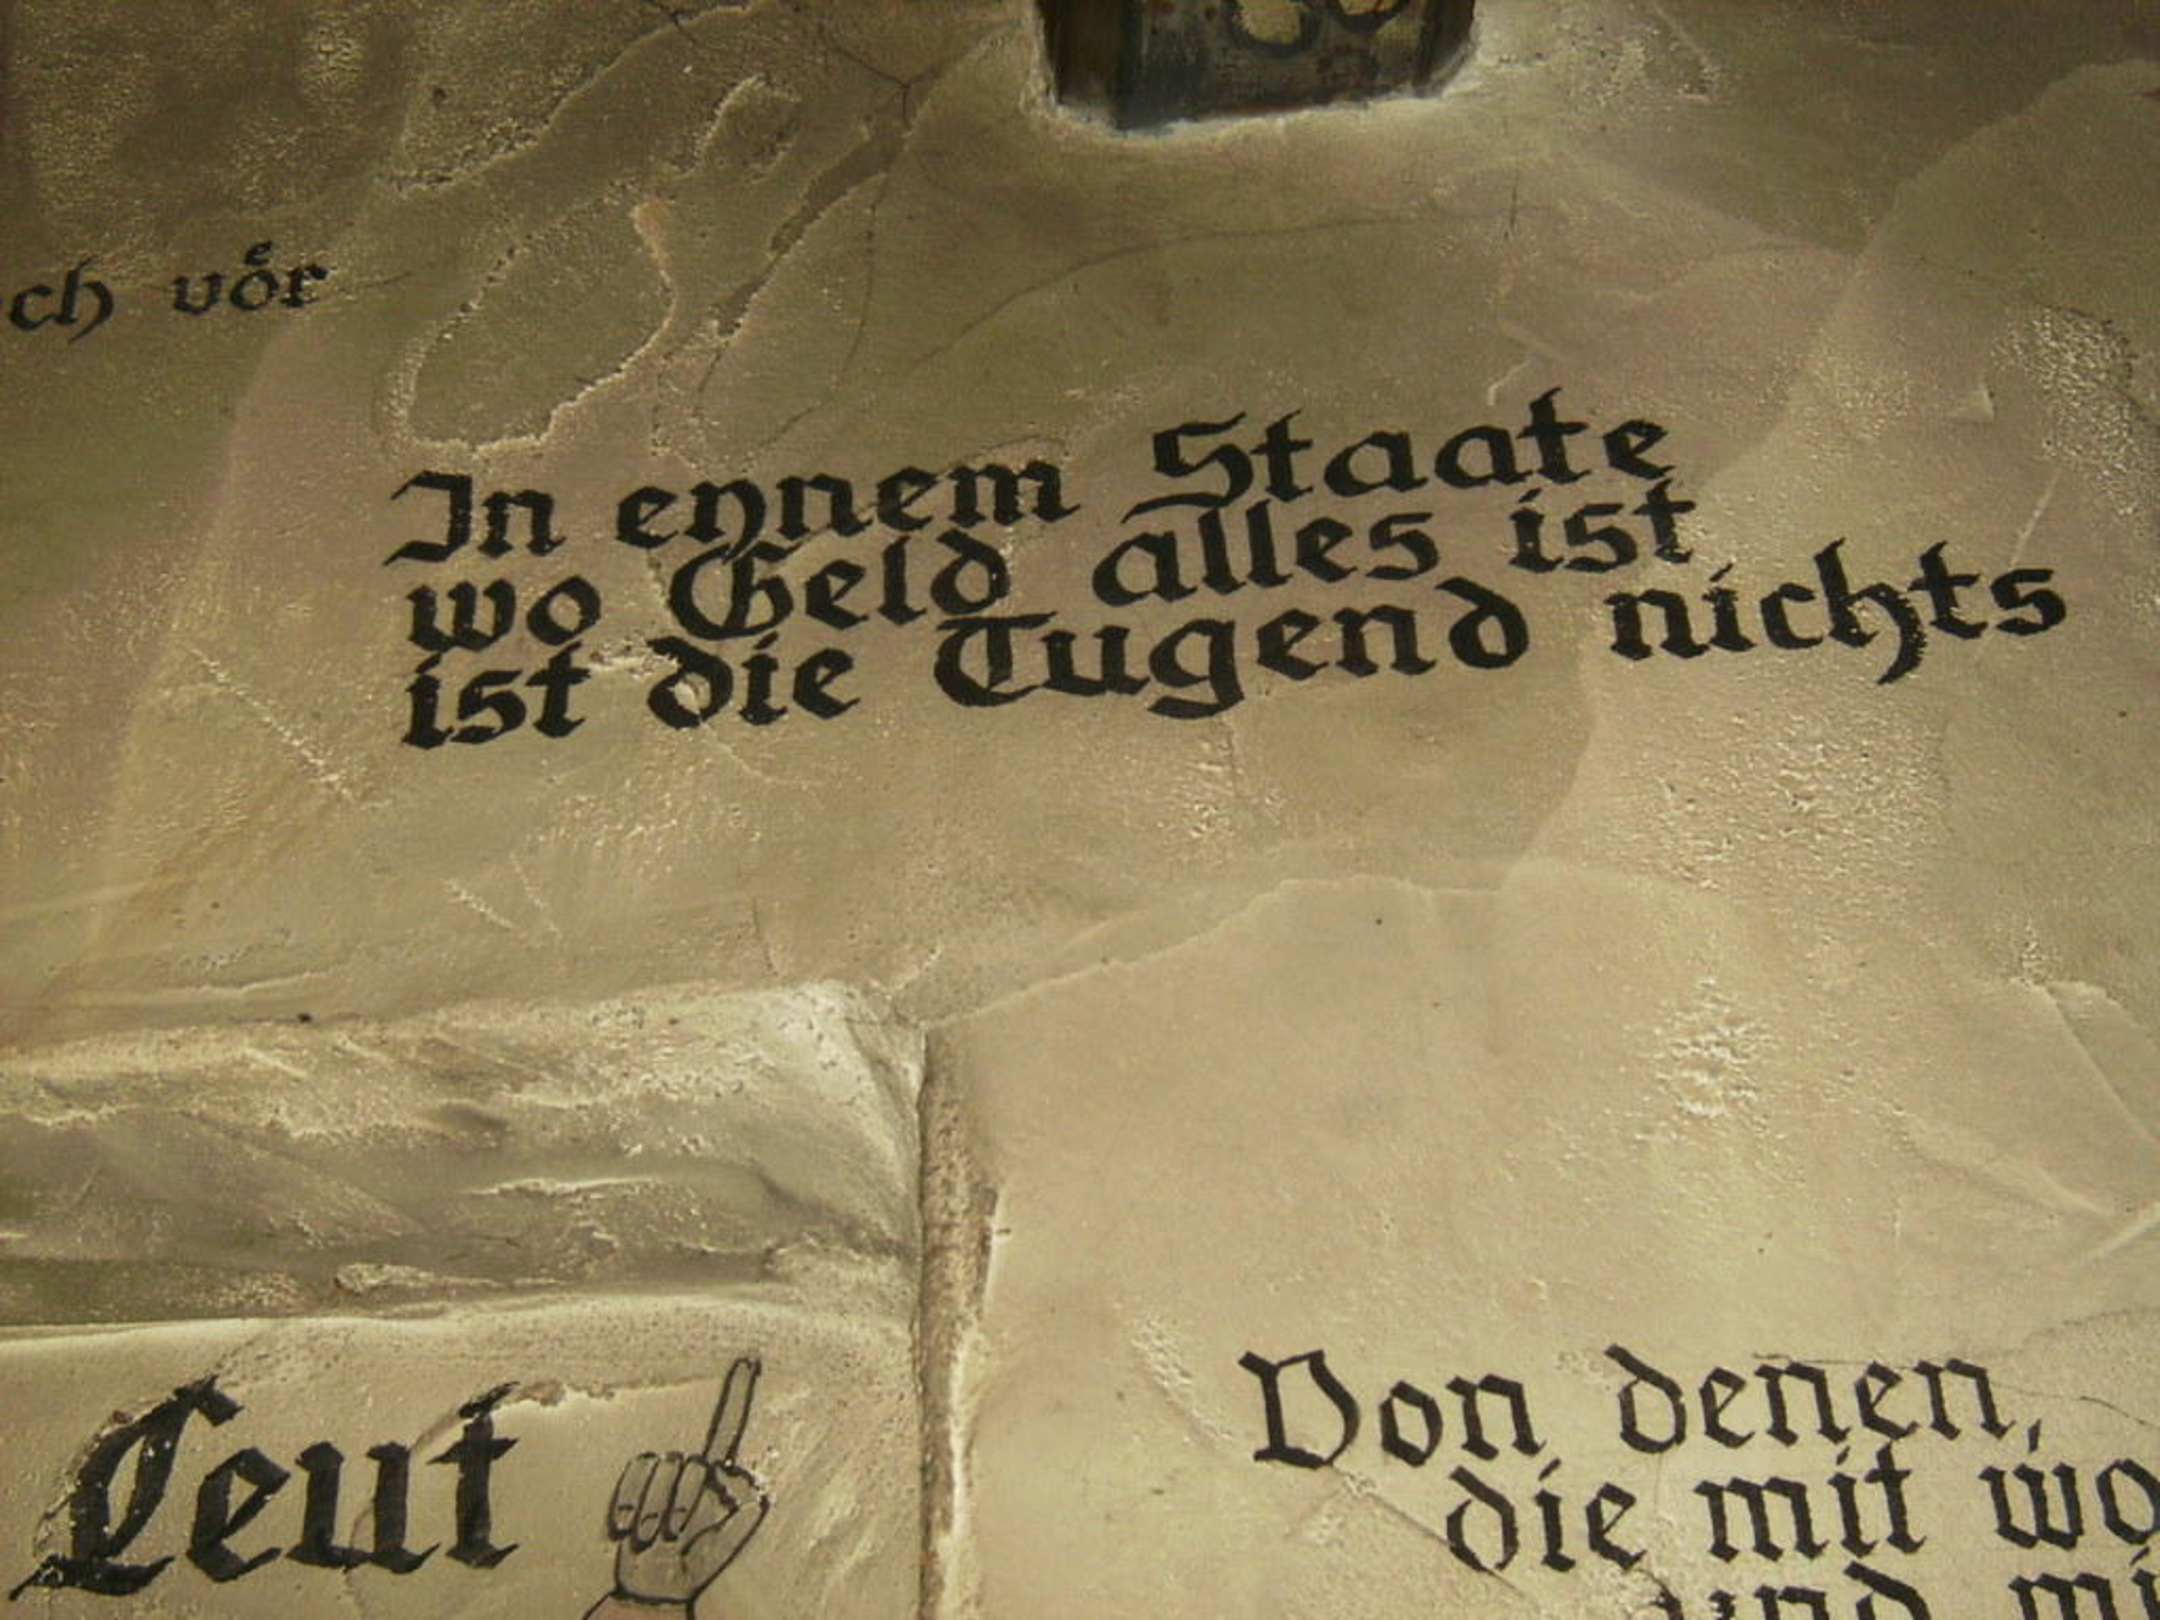 vöͤr
In eynem Staate
wo Geld alles ist
ist die Tugend nichts
Leut
Von denen,
die mit
und